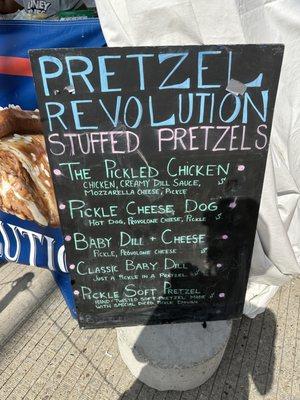 PRETZEL
REVOLUTION
STUFFED PRETZELS
THE PICKLED CHICKEN
CHICKEN, CREAMY DILL SAUCE,
MOZZARELLA CHEESE, PICKLE
PICKLE CHEESE DOG
HOT DOG, PROVOLONE CHEESE, PICKLE
BABY DILL + CHEESE
PICKLE, PROVOLONE CHEESE
CLASSIC BABY DILL
JUST A PICKLE IN A PRETZEL
PICKLE SOFT PRETZEL
HAND-TWISTED SOFT PRETZEL MADE
WITH SPECIAL DICED PICKLE